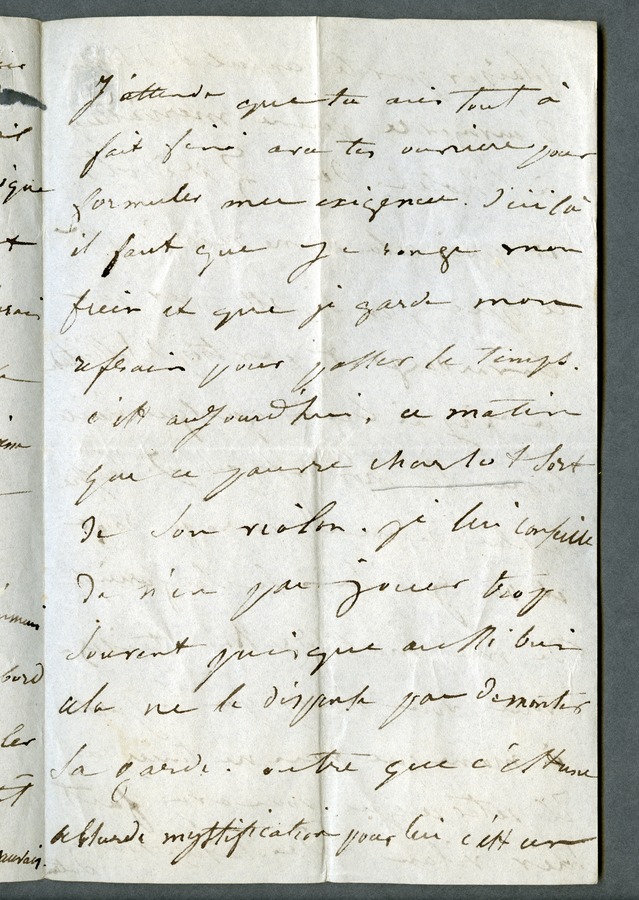 J'attends que tu aies tout à
fait fini avec tes ouvriers pour
formuler mes exigences. D'ici là
il faut que je ronge mon
frein et que je garde mon
refrain pour passer le temps.
c'est aujourd'hui, ce matin
que ce pauvre Charlot sort
de son violon. je lui conseille
de n'en pas jouer trop
souvent puisque aussi bien
cela ne le dispense pas de monter
sa garde. outre que c'est une
absurde mystification pour lui c'est un